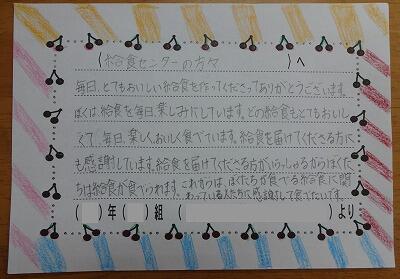 (給食センターの方々)へ
毎日、とてもおいしい給食を作ってくださってありがとうございます。
ぼくは、給食を毎日、楽しみにしています。どの給食もとてもおいし
くて、毎日、楽しくおいしく食べています。給食を届けてくださる方に
も感謝しています。給食を届けてくださる方がいらっしゃるからぼくた
ちは給食が食べられます。これからは、ぼくたちが食べる給食に関
わっている人たちに感謝をして食べたいです。
( )年( )組( )より